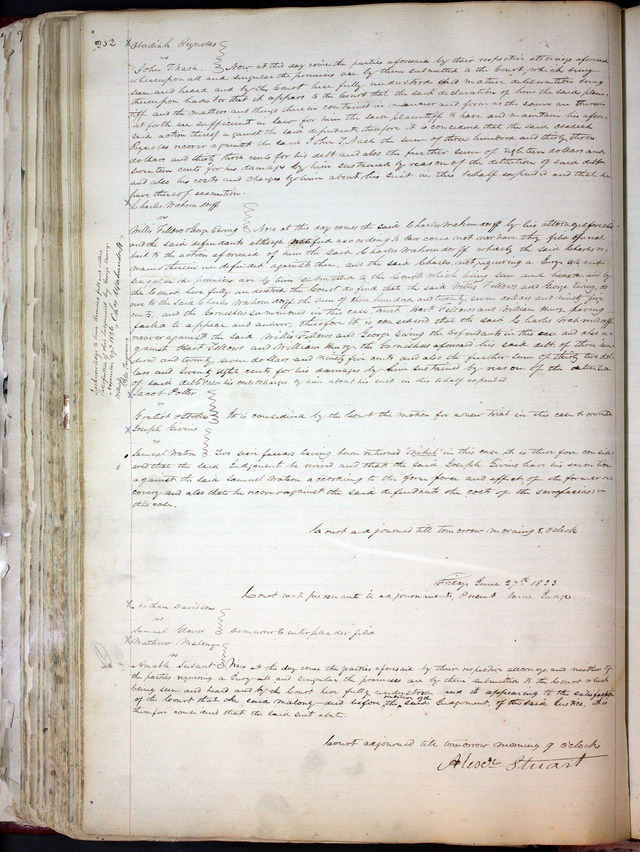 252 Obadiah Reynolds
vs
John Thash Now at this day come the parties aforesaid by their respective attorneys aforesaid
whereupon all and singular the premises are by them submitted to the Court which being
seen and heard and by the Court here fully understood and mature deliberation being
thereupon had for that it appears to the Court that the said declaration of him the said plain
tiff and the matters and things therein contained in manner and form as the same are therein
set forth are sufficient in law for him the said plaintiff to have and maintain his afore
said action thereof against the said defendant therefore it is considered that the said Obadiah
Reynolds recover against the said John Thash the sum of three hundred and thirty three
dollars and thirty three cents for his debt and also the further sum of Eighteen dollars and
seventeen cents for his damages by him sustained by reason of the detention of said debt
and also his costs and charges by him about his suit in this behalf expended and that he
have thereof execution.
Charles Wahrendorff
vs
Willis Fellows & George Ewing Now at this day comes the said Charles Wahrendorff by his attorney aforesaid
and the said defendants although notified according to law come not nor have they filed special
bail to the action aforesaid of him the said Charles Wahrendorff whereby the said Charles re
mains therein undefended against them, and the said Charles not requiring a Jury all and
singular the premises are by him submitted to the Court which being seen and heard and by
the Court here fully understood the Court do find that the said Willis Fellows and George Ewing, do
owe to the said Charles Wahrendorff the sum of three hundred and twenty seven dollars and ninety five
cents, and the Garnishees summoned in this case, Hart Fellows and William Henry, having
failed to appear and answer, therefore it is considered that the said Charles Wahrendorff
recover against the said Willis Fellows and George Ewing the Defendants in this case and also a-
gainst Hart Fellows and William Henry the Garnishees aforesaid his said debt of three hun
dred and twenty seven dollars and ninety five cents and also the further sum of thirty two dol
lars and seventy eight cents for his damages by him sustained by reason of the detention
of said debt & also his costs & charges by him about his suit in this behalf expended
Jacob Potter
vs
Gratiot & Locks It is considered by the Court the motion for a new trial in this case be overruled
Joseph Givins
vs
Samuel Watson Two scire facias having been returned "Nihil" in this case it is therefore consid
ered that the said Judgment be revived and that the said Joseph Givins have his execution
against the said Samuel Watson according to the form force and effect of the former re
covery and also that he recover against the said defendants the costs of the scirefacias in
this case.
Court adjourned till tomorrow morning 8 oclock
Friday June 27th 1823
Court met pursuant to adjournment, Present same Judge
Nathan Davidson
vs
Samuel Glover Demurrer to interpleader filed
Mathew Malong
vs
Aimable Susant Now at this day come the parties aforesaid by their respective attorneys, and neither of
the parties requiring a Jury all and singular the premises are by them submitted to the Court which
being seen and heard and by the Court here fully understood and it appearing to the satisfaction
of the Court that the said Malong died before the rendition of the said Judgement, of the said Justice, it is
therefore considered that the said suit abate.
Court adjourned till tomorrow morning 9 oclock
Alexr Stuart